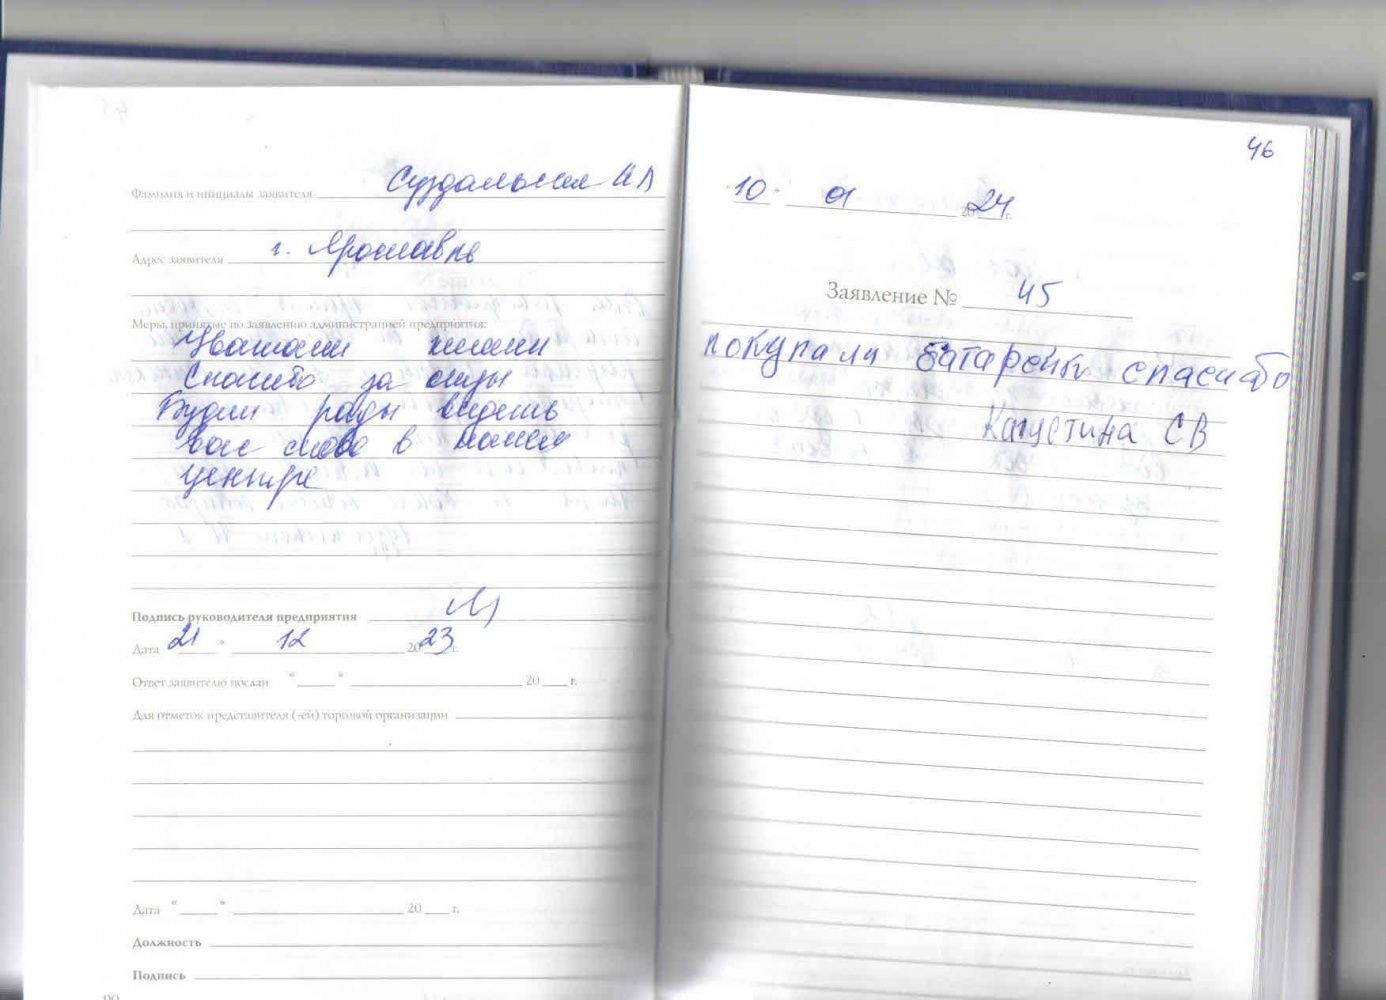 Фамилия и инициалы заявителя
Адрес заявителя г. Ярославль
Меры, принятые по заявлению администрацией предприятия:
Спасибо за
Будем рады видеть
вас снова в нашем
центре
Подпись руководителя предприятия
Дата 21 " 12 2023 г.
Ответ заявителю послан " " 20 г.
Для отметок представителя (-ей) торговой организации
Дата " " 20 г.
Должность
Подпись
46
"10" 01 2024 г.
Заявление № 45
покупали батарейки спасибо
Капустина СВ